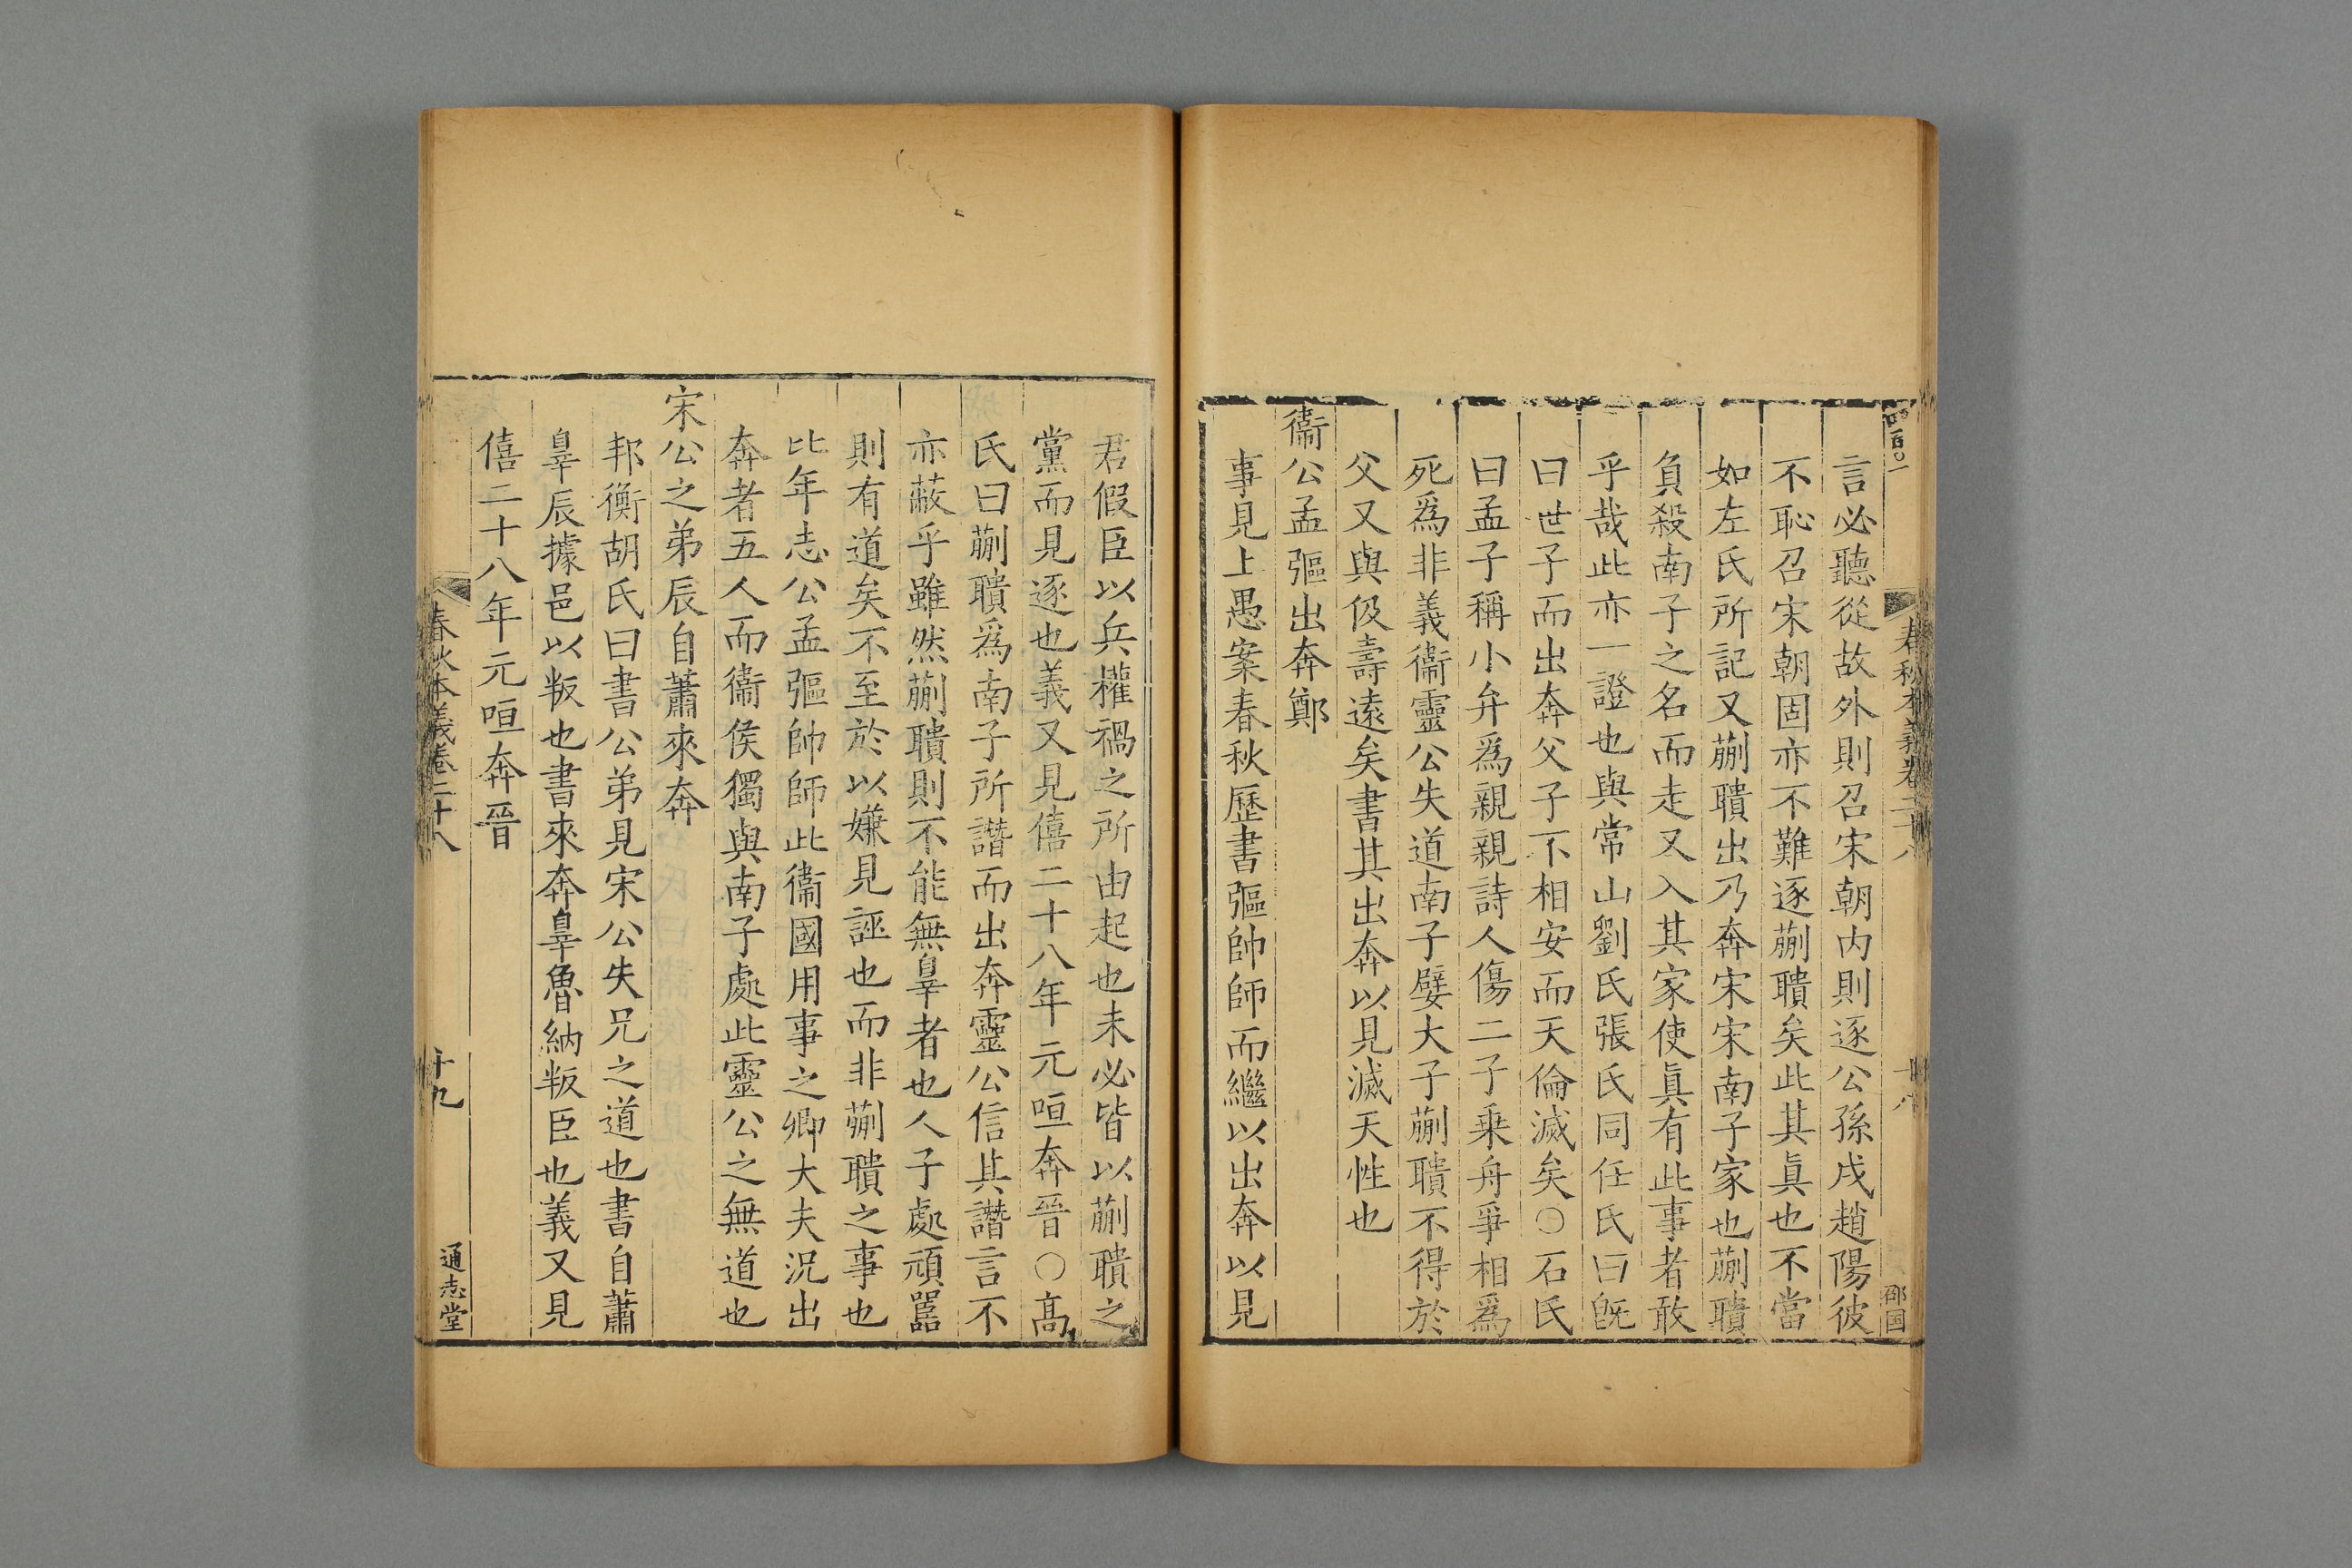 四百〇一
春秋本義卷二十八
十八
邵国
言必聽從故外則召宋朝内則逐公孫戌趙陽彼
不恥召宋朝固亦不難逐蒯聵矣此其眞也不當
如左氏所記又蒯聵出乃奔宋宋南子家也蒯聵
負殺南子之名而走又入其家使眞有此事者敢
乎哉此亦一證也與常山劉氏張氏同任氏曰旣
曰世子而出奔父子不相安而天倫滅矣○石氏
曰孟子稱小弁爲親親詩人傷二子乗舟爭相爲
死爲非義衞靈公失道南子嬖大子蒯聵不得於
父又與伋壽遠矣書其出奔以見滅天性也
衞公孟彄出奔鄭
事見上愚案春秋歷書彄帥師而繼以出奔以見
君假臣以兵權禍之所由起也未必皆以蒯聵之
黨而見逐也義又見僖二十八年元咺奔晉○高
氏曰蒯聵爲南子所譖而出奔靈公信其譖言不
亦蔽乎雖然蒯聵則不能無辠者也人子處頑嚚
則有道矣不至於以嫌見誣也而非蒯聵之事也
比年志公孟彄帥師此衞國用事之卿大夫況出
奔者五人而衞侯獨與南子處此靈公之無道也
宋公之弟辰自蕭來奔
邦衡胡氏曰書公弟見宋公失兄之道也書自蕭
辠辰據邑以叛也書來奔辠魯納叛臣也義又見
僖二十八年元咺奔晉
春秋本義卷二十八
十九
通志堂